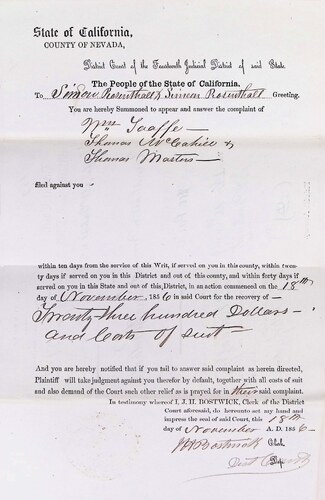 State of California,
COUNTY OF NEVADA,
District Court of the Fourteenth Judicial District of said State
The People of the State of California.
To Simon Rosenthall & Rosenthall Greeting.
You are hereby Summoned to appear and answer the complaint of
Wm Taaffe
Thomas McCahill &
Thomas Masters
filed against you
within ten days from the service of this Writ, if served on you in this county, within twen-
ty days if served on you in this District and out of this county, and within forty days if
served on you in this State and out of this District, in an action commenced on the 18th
day of November 1856 in said Court for the recovery of
Twenty three hundred Dollars
and Costs of suit
And you are hereby notified that if you fail to answer said complaint as herein directed,
Plaintiff will take judgment against you therefor by default, together with all costs of suit
and also demand of the Court such other relief as is prayed for in their said complaint.
In testimony whereof I, J. H. BOSTWICK, Clerk of the District
Court aforesaid, do hereunto set my hand and
impress the seal of said Court, this 18th
day of November A. D. 1856
J H Bostwick Clerk
Dep